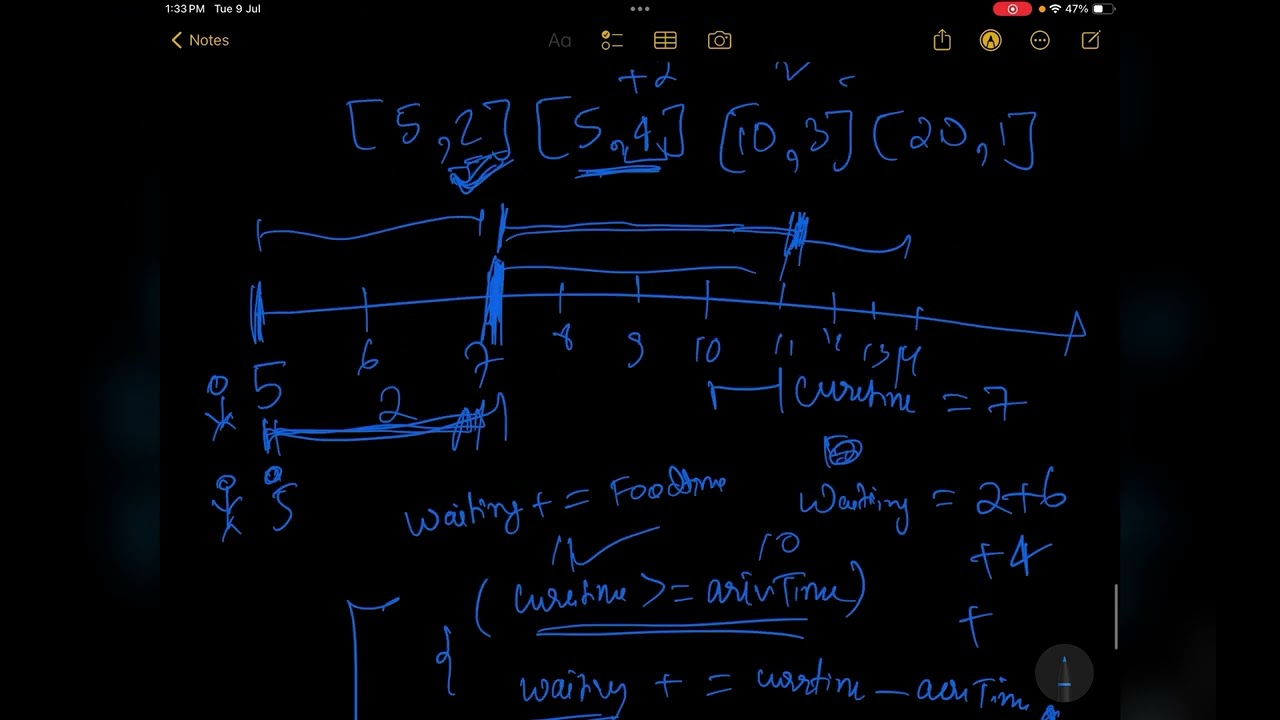 1:33 PM Tue 9 Jul 47%
Notes
Aa
+2
[5,2] [5,4] [10,3] [20,1]
5 6 7 8 9 10 11 12 13 14
2
curetime = 7
5
waiting + = Foodtime
waiting = 2+6
+4
11 10
(curetime >= arivTime)
+
{
waiting + = currtime - arivTime